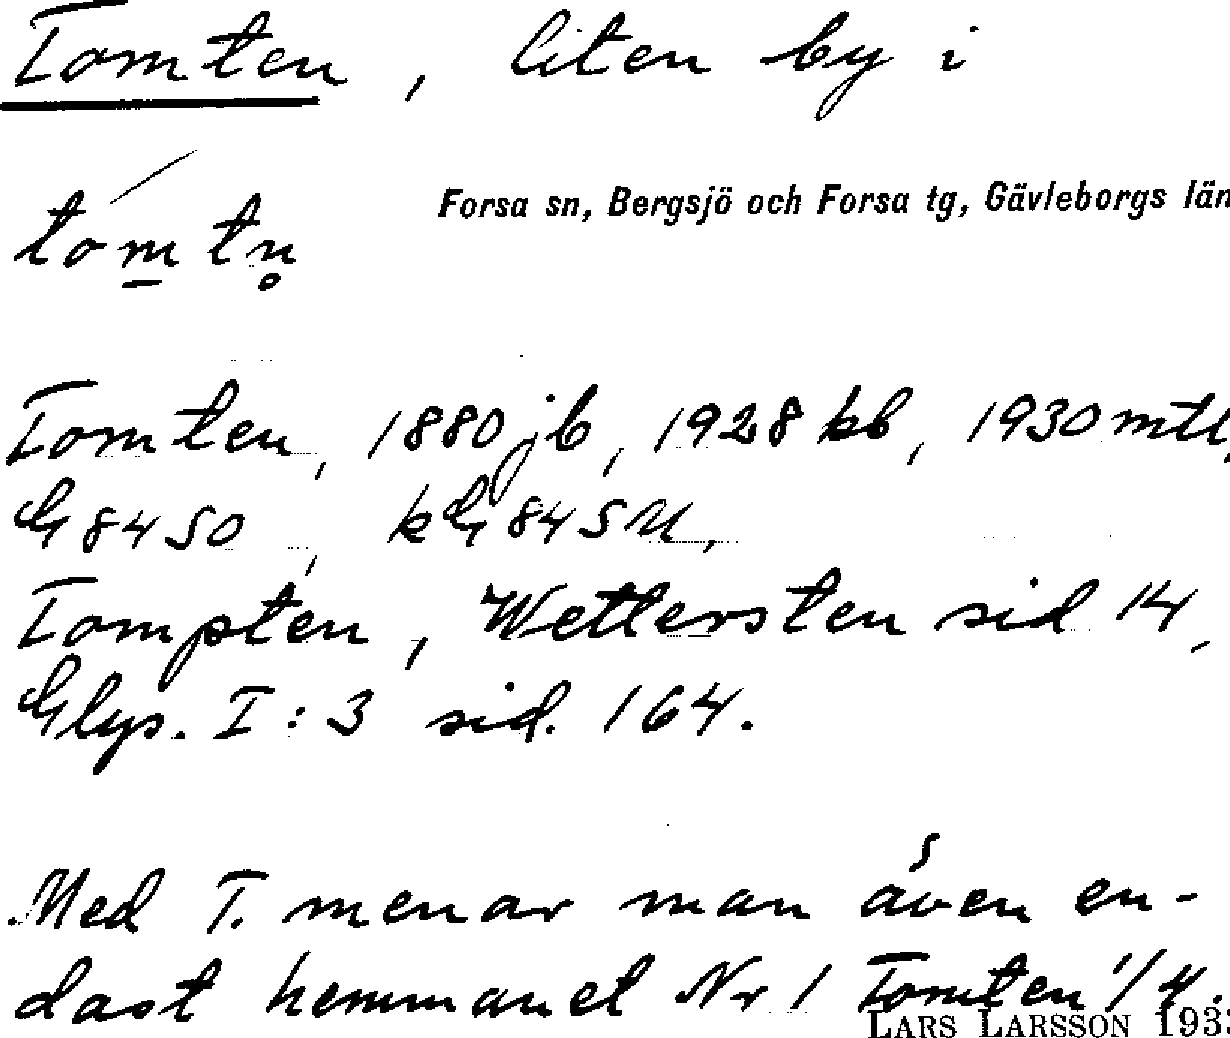 Tomten, liten by i
Forsa sn, Bergsjö och Forsa tg, Gävleborgs län
tómtn̥
Tomten, 1880 jb, 1928 kb, 1930 mtl,
G 84 SO, kG 84 SU,
Tompten, Wettersten sid 14,
Glys. I:3 sid. 164.
Med T. menar man även en-
dast hemmanet Nr 1 Tomten 1/4.
LARS LARSSON 193